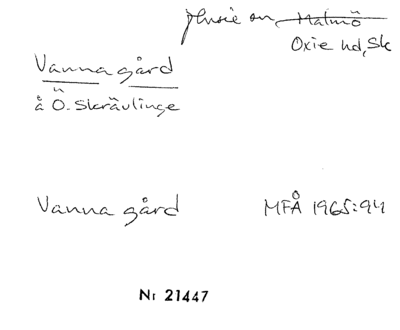 Husie sn Malmö
Oxie hd, Sk
Vanna gård
å Ö. Skrävlinge
Vanna gård MFÅ 1965:94
Nr 21447